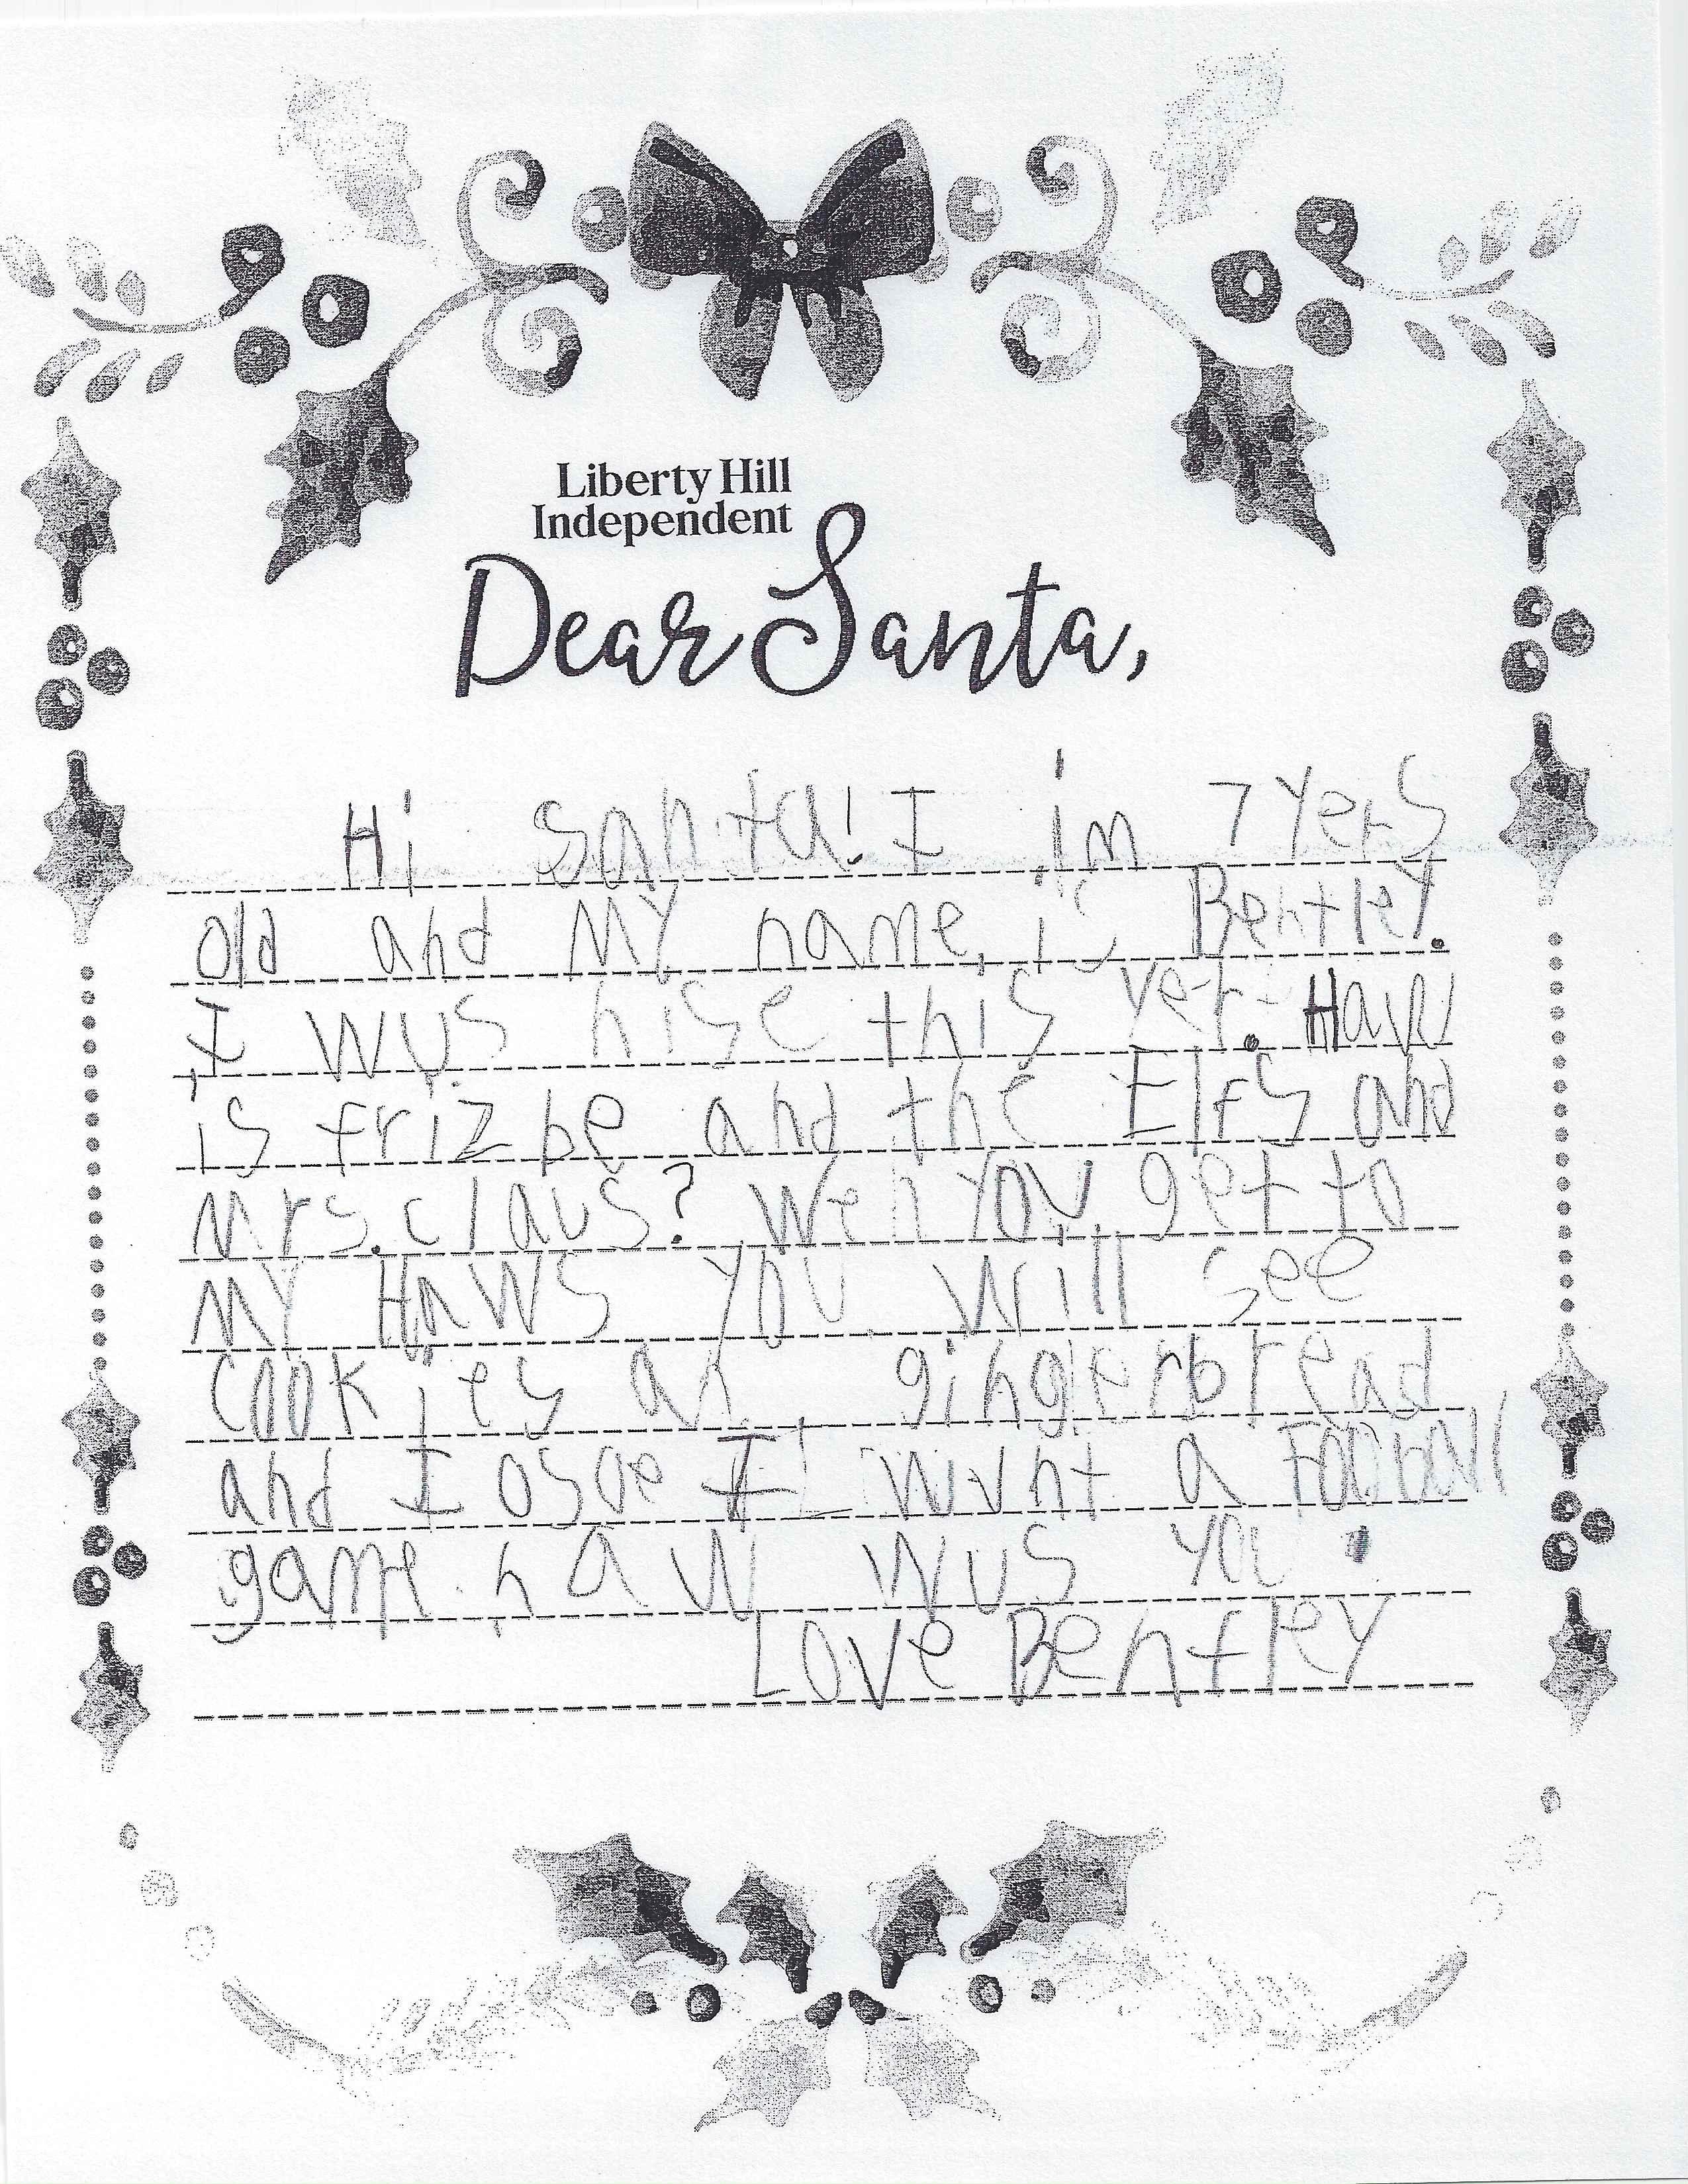 Liberty Hill
Independent
Dear Santa,
Hi Santa! I im 7 Yers
old and My name, is Bentley.
I wus nise this yer. Haw
is frizbe and the Elfs and
Mrs. claus? Wen You get to
MY Haws You will see
cookies an gingerbread
and I osoe I wunt a Fooball
game. haw wus you
Love Bentley